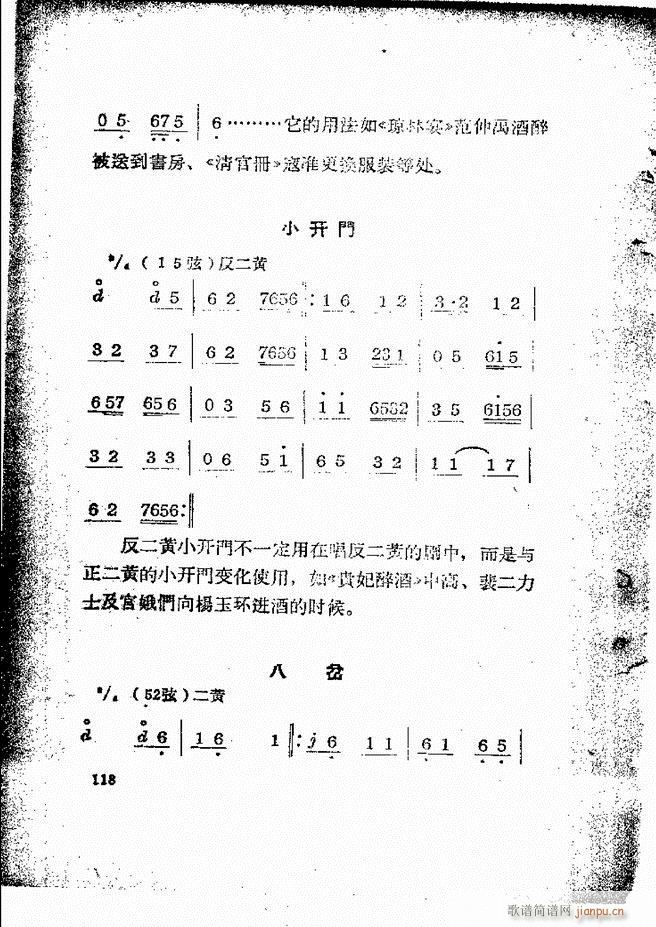 0 5 6 7 5 | 6 ………它的用法如《琼林宴》范仲禹酒醉
被送到書房、《清官册》寇准更换服装等处。
小开門
2/4 (1 5弦)反二黄
d d 5 | 6 2 7656 :1 6 1 2 | 3·2 1 2 |
3 2 3 7 | 6 2 7656 | 1 3 231 | 0 5 615 |
657 656 | 0 3 5 6 | 1 1 6532 | 3 5 6156 |
3 2 3 3 | 0 6 5 1 | 6 5 3 2 | 1 1 1 7 |
6 2 7656 :‖
反二黄小开門不一定用在唱反二黄的剧中，而是与
正二黄的小开門变化使用，如《貴妃醉酒》中高、裴二力
士及宫娥們向楊玉环进酒的时候。
八岔
2/4 (52弦)二黄
d d 6 | 1 6 1 ‖: j 6 1 1 | 6 1 6 5 |
118
歌谱简谱网 jianpu.cn